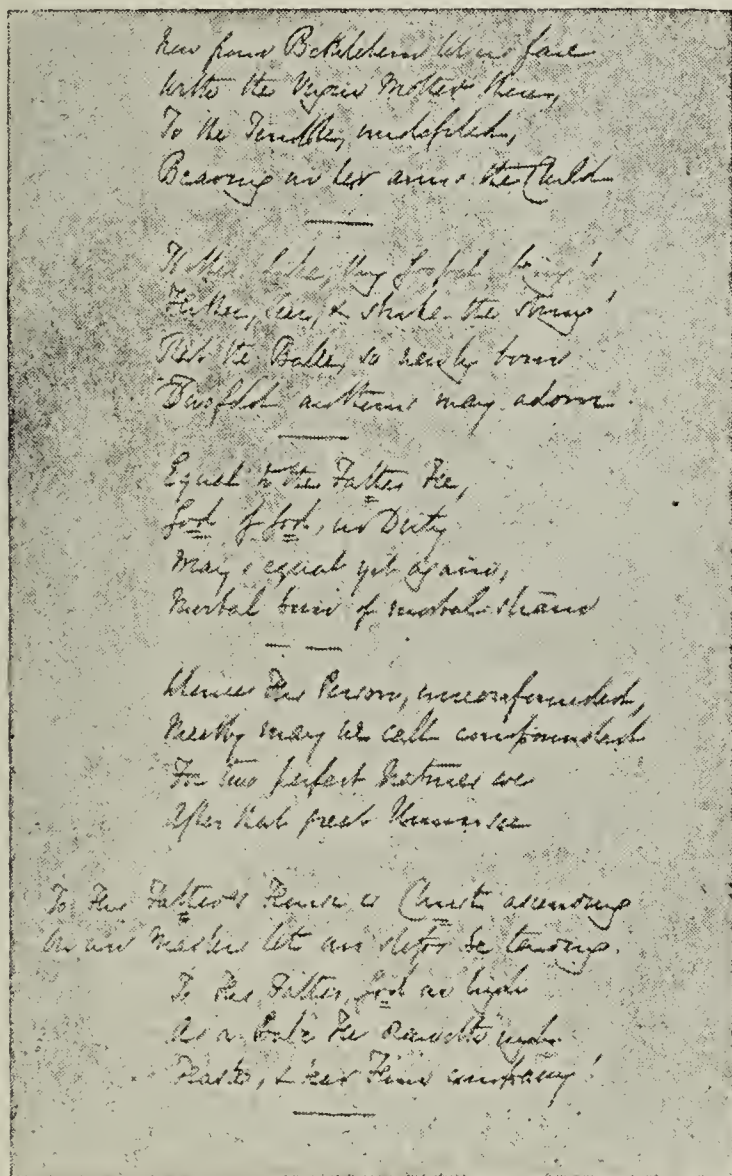 Now from Bethlehem let us fare
With the Virgin Mother there,
To the Temple, undefiled,
Bearing in her arms the Child
Hither, Luke, thy Gospel bring!
Hither, & strike the string!
That the Babe, so newly born
Twofold anthems may adorn.
Equal to the Father He,
God of God, in Deity
Mary's equal yet again,
Mortal twin of mortal strain
Whence His Person, unconfounded,
Meetly may we call compounded
In two perfect Natures we
After that great Union see
To His Father's House is Christ ascending
On our Master let our steps be tending.
To His Father, God on high
As a Babe He draweth nigh
Haste, & bear Him company!